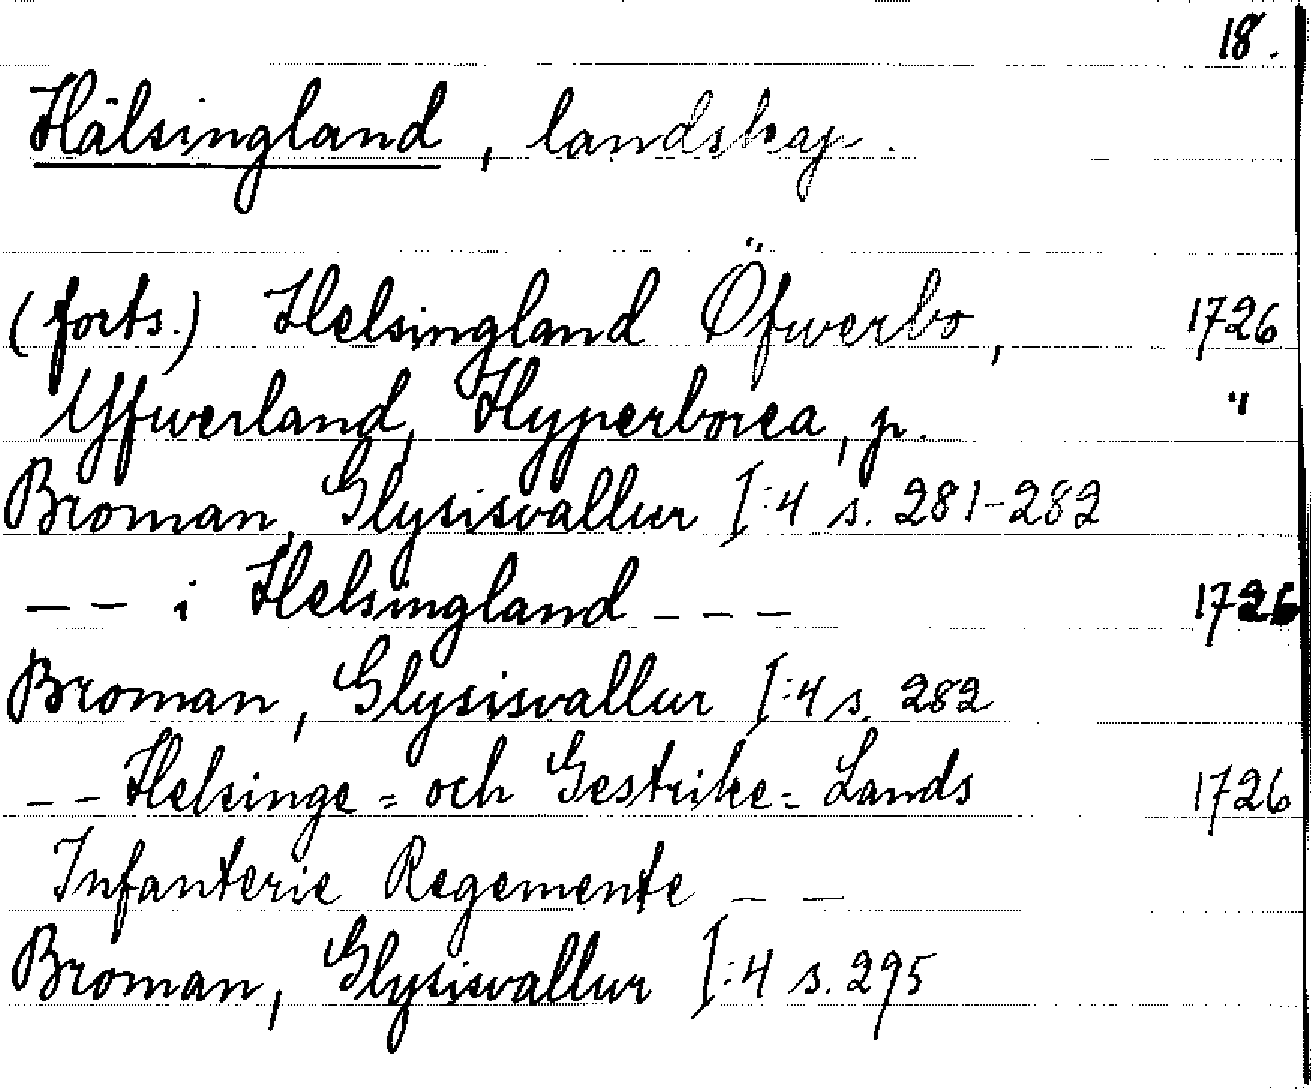 18.
Hälsingland, landskap.
(forts.) Helsingland Öfwerbo, 1726
Yfwerland, Hyperborea, p. "
Broman, Glysisvallur I:4 s. 281-282
-- i Helsingland --- 1726
Broman, Glysisvallur I:4 s. 282
-- Helsinge= och Gestrike= Lands 1726
Infanterie Regemente --
Broman, Glysisvallur I:4 s. 295